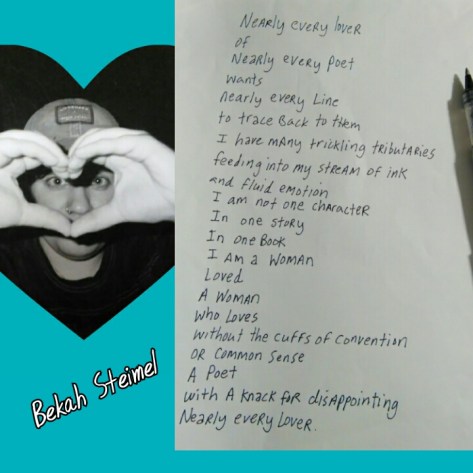 Nearly every lover
of
Nearly every poet
wants
nearly every Line
to trace Back to them
I have many trickling tributaries
feeding into my stream of ink
and fluid emotion
I am not one character
In one story
In one Book
I Am a Woman
Loved
A Woman
who Loves
without the cuffs of convention
or common sense
A Poet
with A knack for disappointing
Nearly every Lover.
Bekah Steimel